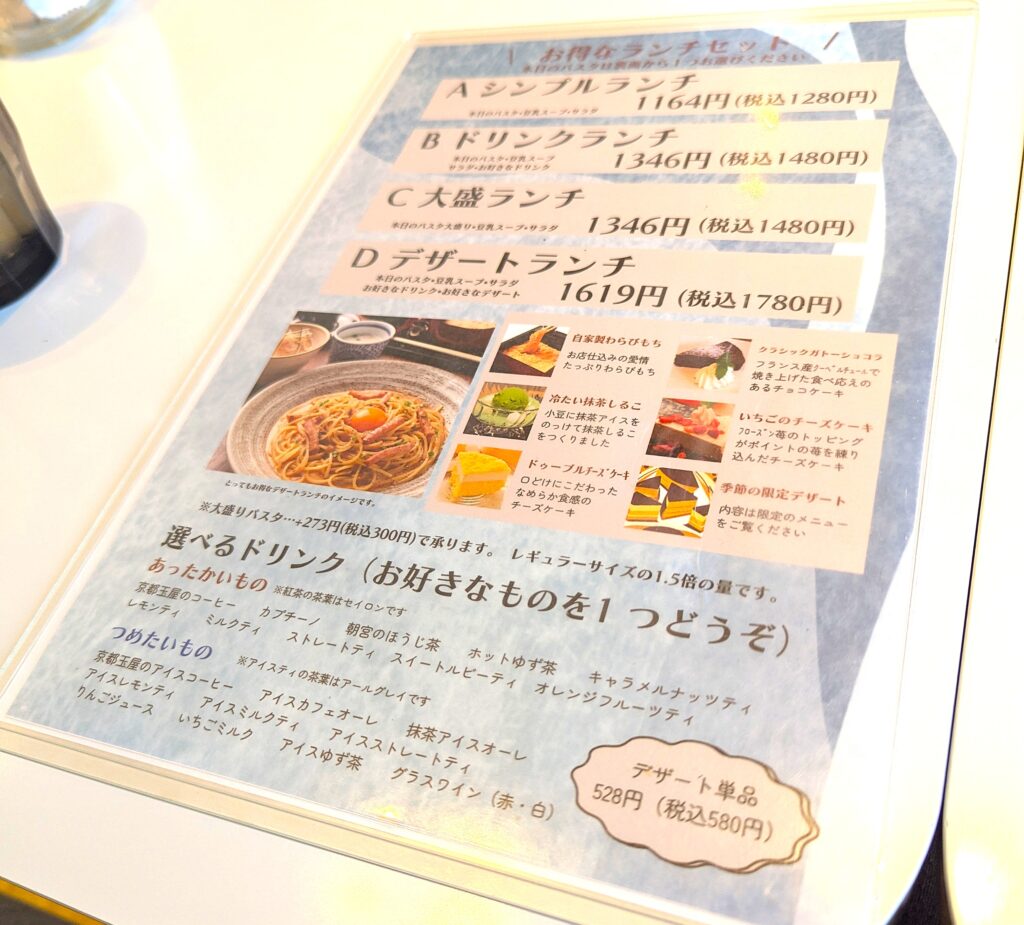 \ お得なランチセット /
本日のパスタは裏面から1つお選びください
A シンプルランチ
本日のパスタ・豆乳スープ・サラダ
1164円(税込1280円)
B ドリンクランチ
本日のパスタ・豆乳スープ
サラダ・お好きなドリンク
1346円(税込1480円)
C 大盛ランチ
本日のパスタ大盛り・豆乳スープ・サラダ
1346円(税込1480円)
D デザートランチ
本日のパスタ・豆乳スープ・サラダ
お好きなドリンク・お好きなデザート
1619円(税込1780円)
とってもお得なデザートランチのイメージです。
自家製わらびもち
お店仕込みの愛情
たっぷりわらびもち
冷たい抹茶しるこ
小豆に抹茶アイスを
のっけて抹茶しるこ
をつくりました
ドゥーブルチーズケーキ
口どけにこだわった
なめらか食感の
チーズケーキ
クラシックガトーショコラ
フランス産クーベルチュールで
焼き上げた食べ応えの
あるチョコケーキ
いちごのチーズケーキ
フローズン苺のトッピング
がポイントの苺を練り
込んだチーズケーキ
季節の限定デザート
内容は限定のメニュー
をご覧ください
※大盛りパスタ…+273円(税込300円)で承ります。 レギュラーサイズの1.5倍の量です。
選べるドリンク (お好きなものを1つどうぞ)
あったかいもの ※紅茶の茶葉はセイロンです
京都玉屋のコーヒー カプチーノ 朝宮のほうじ茶 ホットゆず茶 キャラメルナッツティ
レモンティ ミルクティ ストレートティ スイートルビーティ オレンジフルーツティ
つめたいもの ※アイスティの茶葉はアールグレイです
京都玉屋のアイスコーヒー アイスカフェオーレ 抹茶アイスオーレ
アイスレモンティ アイスミルクティ アイスストレートティ
りんごジュース いちごミルク アイスゆず茶 グラスワイン (赤・白)
デザート単品
528円 (税込580円)